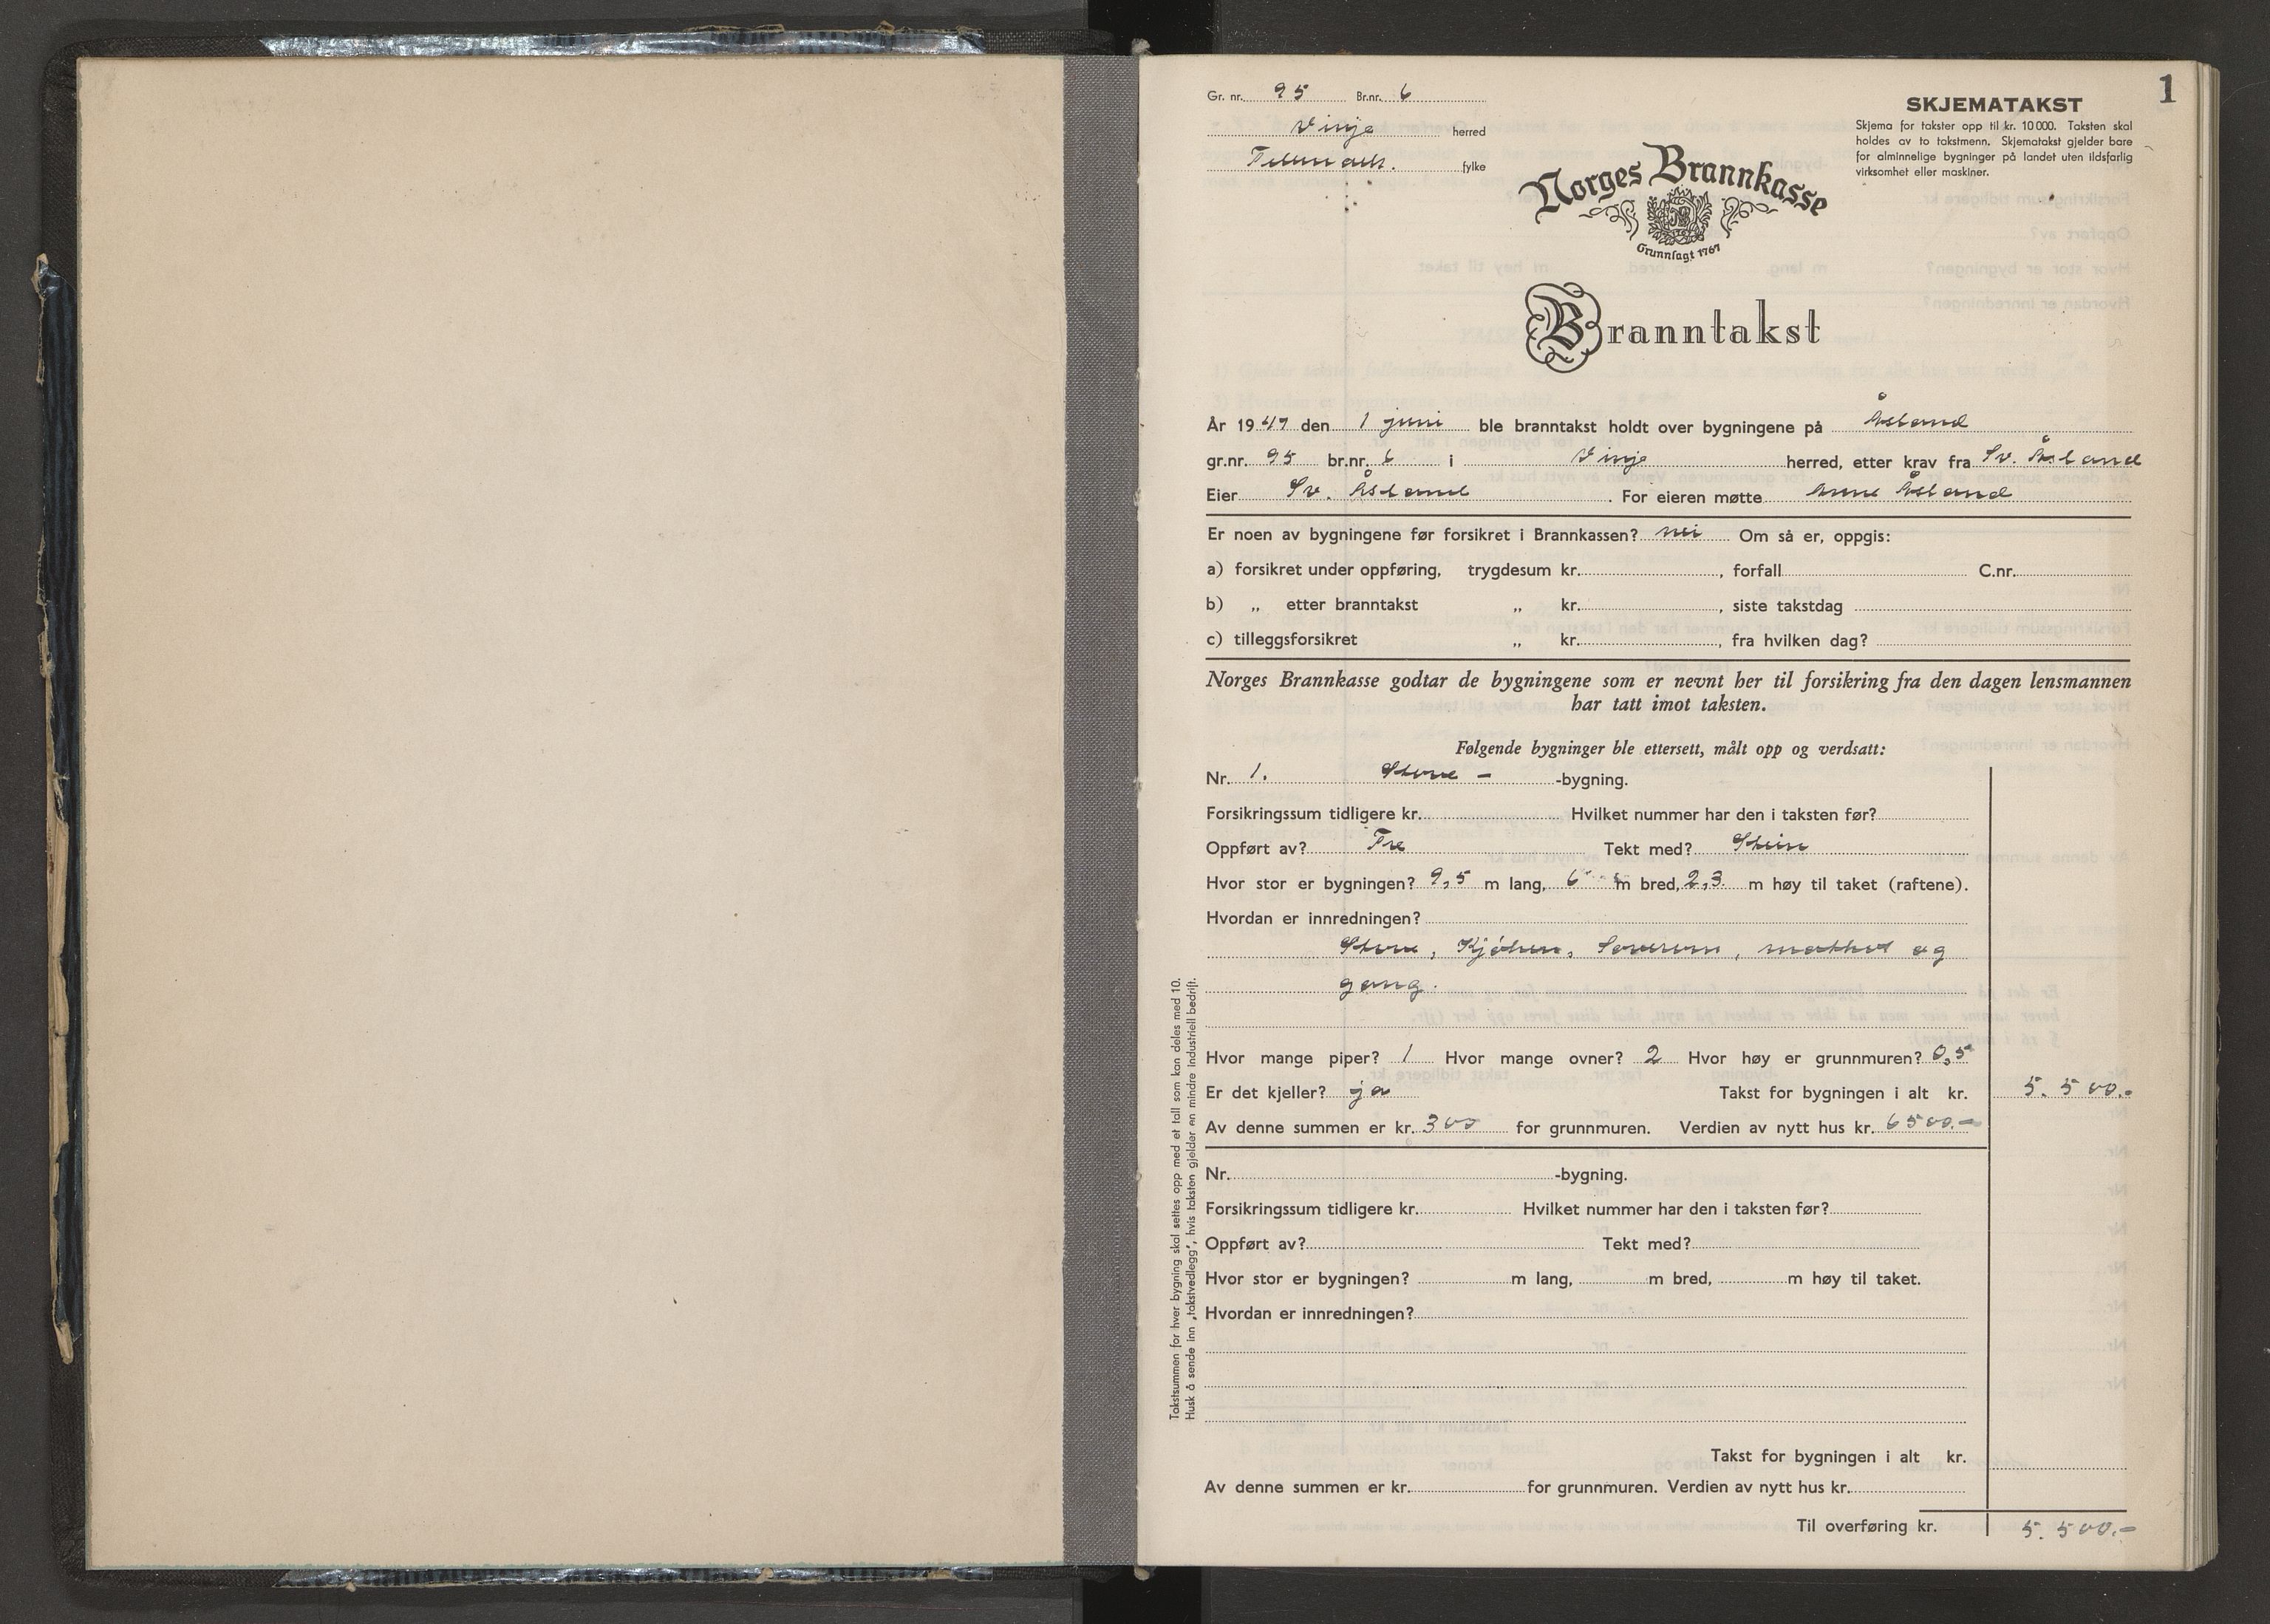 1
Gr. nr. 95 Br.nr. 6
Vinje herred
Telemark. fylke
SKJEMATAKST
Skjema for takster opp til kr. 10 000. Taksten skal
holdes av to takstmenn. Skjematakst gjelder bare
for alminnelige bygninger på landet uten ildsfarlig
virksomhet eller maskiner.
Norges Brannkasse
Grunnlagt 1767
Branntakst
År 1947 den 1 juni ble branntakst holdt over bygningene på Åsland
gr.nr. 95 br.nr. 6 i Vinje herred, etter krav fra Sv. Åsland
Eier Sv. Åsland. For eieren møtte Anne Åsland
Er noen av bygningene før forsikret i Brannkassen? nei Om så er, oppgis:
a) forsikret under oppføring, trygdesum kr. , forfall C.nr.
b) „ etter branntakst „ kr. , siste takstdag
c) tilleggsforsikret „ kr. , fra hvilken dag?
Norges Brannkasse godtar de bygningene som er nevnt her til forsikring fra den dagen lensmannen
har tatt imot taksten.
Følgende bygninger ble ettersett, målt opp og verdsatt:
Nr. 1. Stove - -bygning.
Forsikringssum tidligere kr. Hvilket nummer har den i taksten før?
Oppført av? Tre Tekt med? Stein
Hvor stor er bygningen? 9,5 m lang, 6 m bred, 2,3 m høy til taket (raftene).
Hvordan er innredningen?
Stove, Kjøken, Soverom, matbud og
gang.
Hvor mange piper? 1 Hvor mange ovner? 2 Hvor høy er grunnmuren? 0,5
Er det kjeller? ja Takst for bygningen i alt kr. 5.500.-
Av denne summen er kr. 300 for grunnmuren. Verdien av nytt hus kr. 6500.-
Nr. -bygning.
Forsikringssum tidligere kr. Hvilket nummer har den i taksten før?
Oppført av? Tekt med?
Hvor stor er bygningen? m lang, m bred, m høy til taket.
Hvordan er innredningen?
Takst for bygningen i alt kr.
Av denne summen er kr. for grunnmuren. Verdien av nytt hus kr.
Til overføring kr. 5.500.-
Takstsummen for hver bygning skal settes opp med et tall som kan deles med 10.
Husk å sende inn „takstvedlegg", hvis taksten gjelder en mindre industriell bedrift.